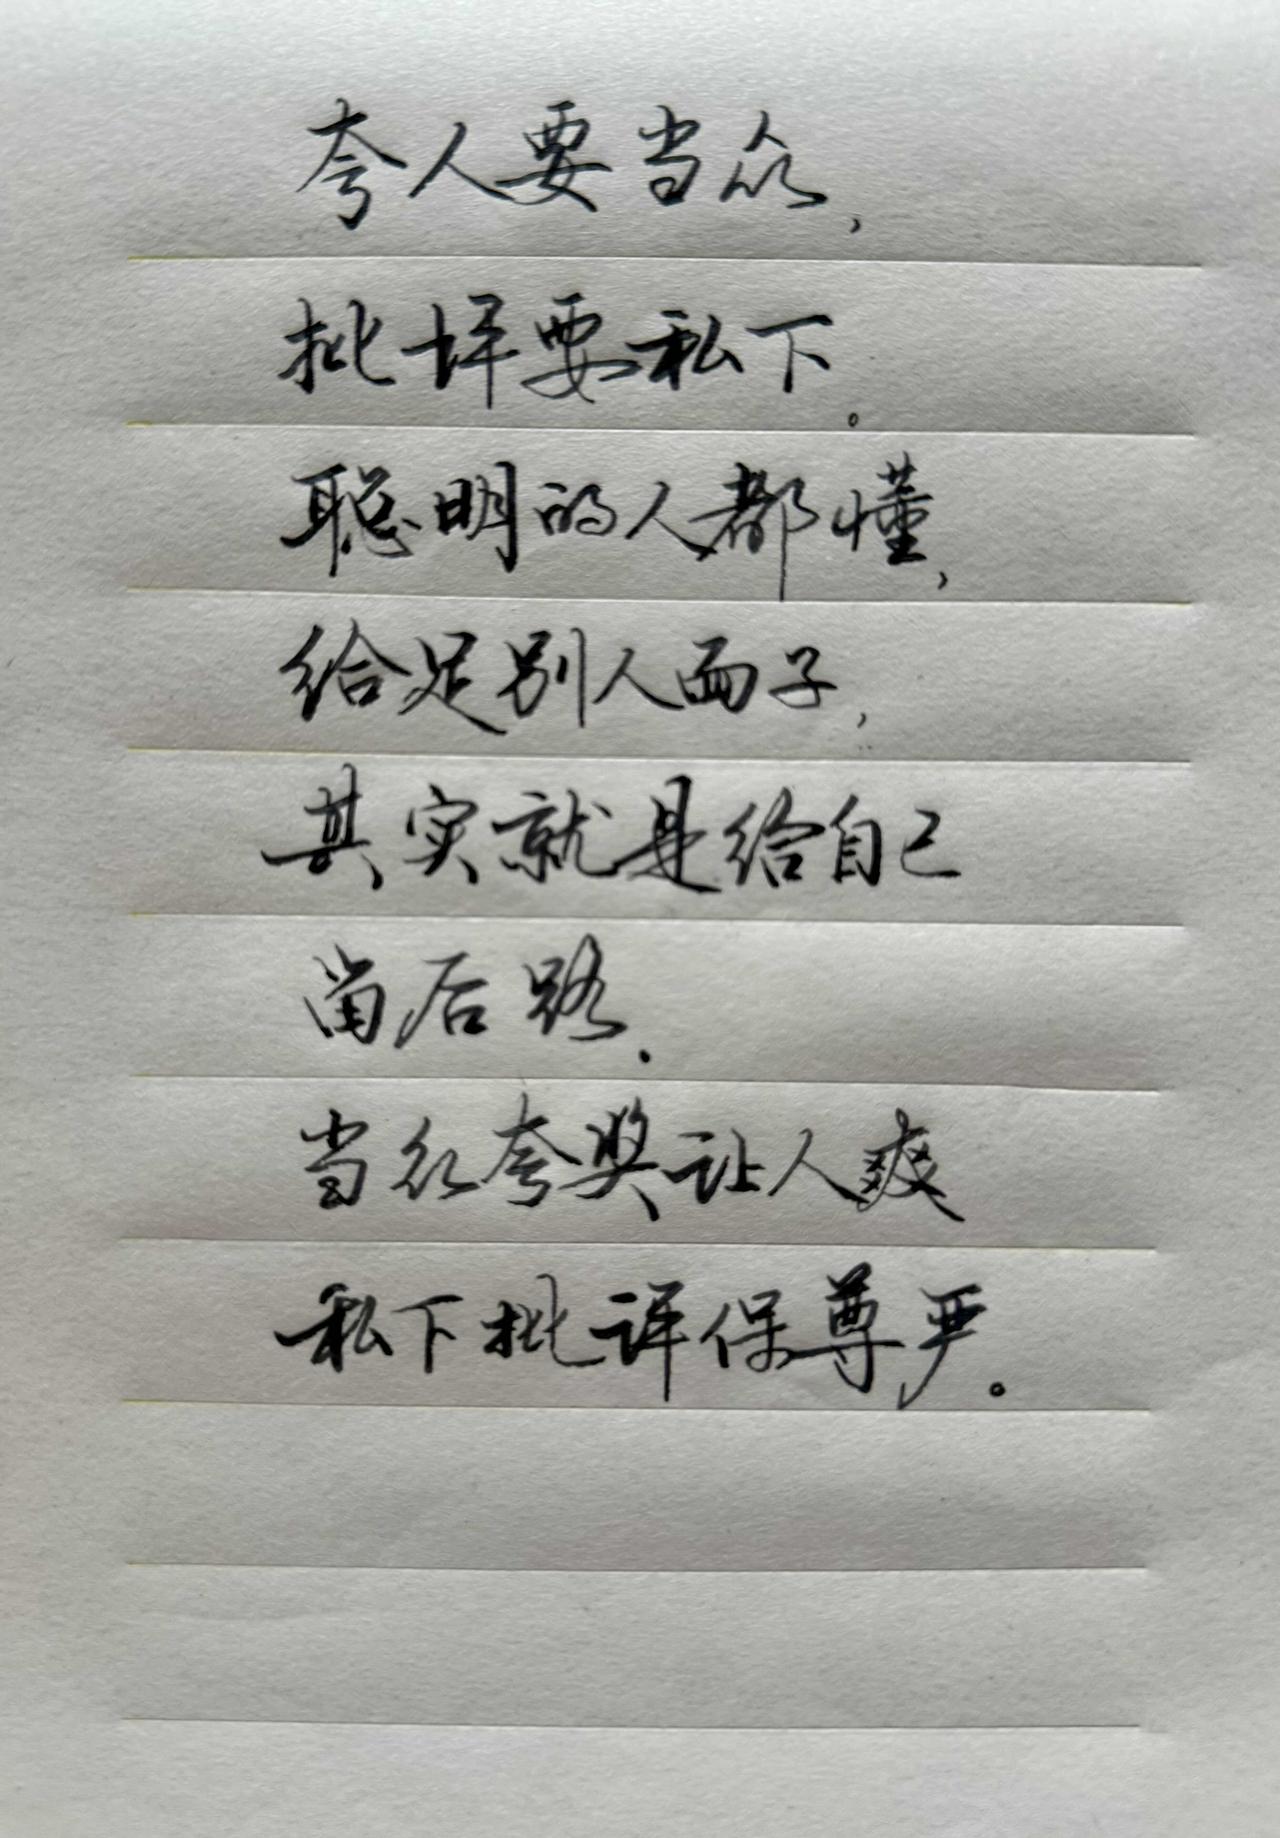 夸人要当众，
批评要私下。
聪明的人都懂，
给足别人面子，
其实就是给自己
留后路.
当众夸奖让人爽
私下批评保尊严。